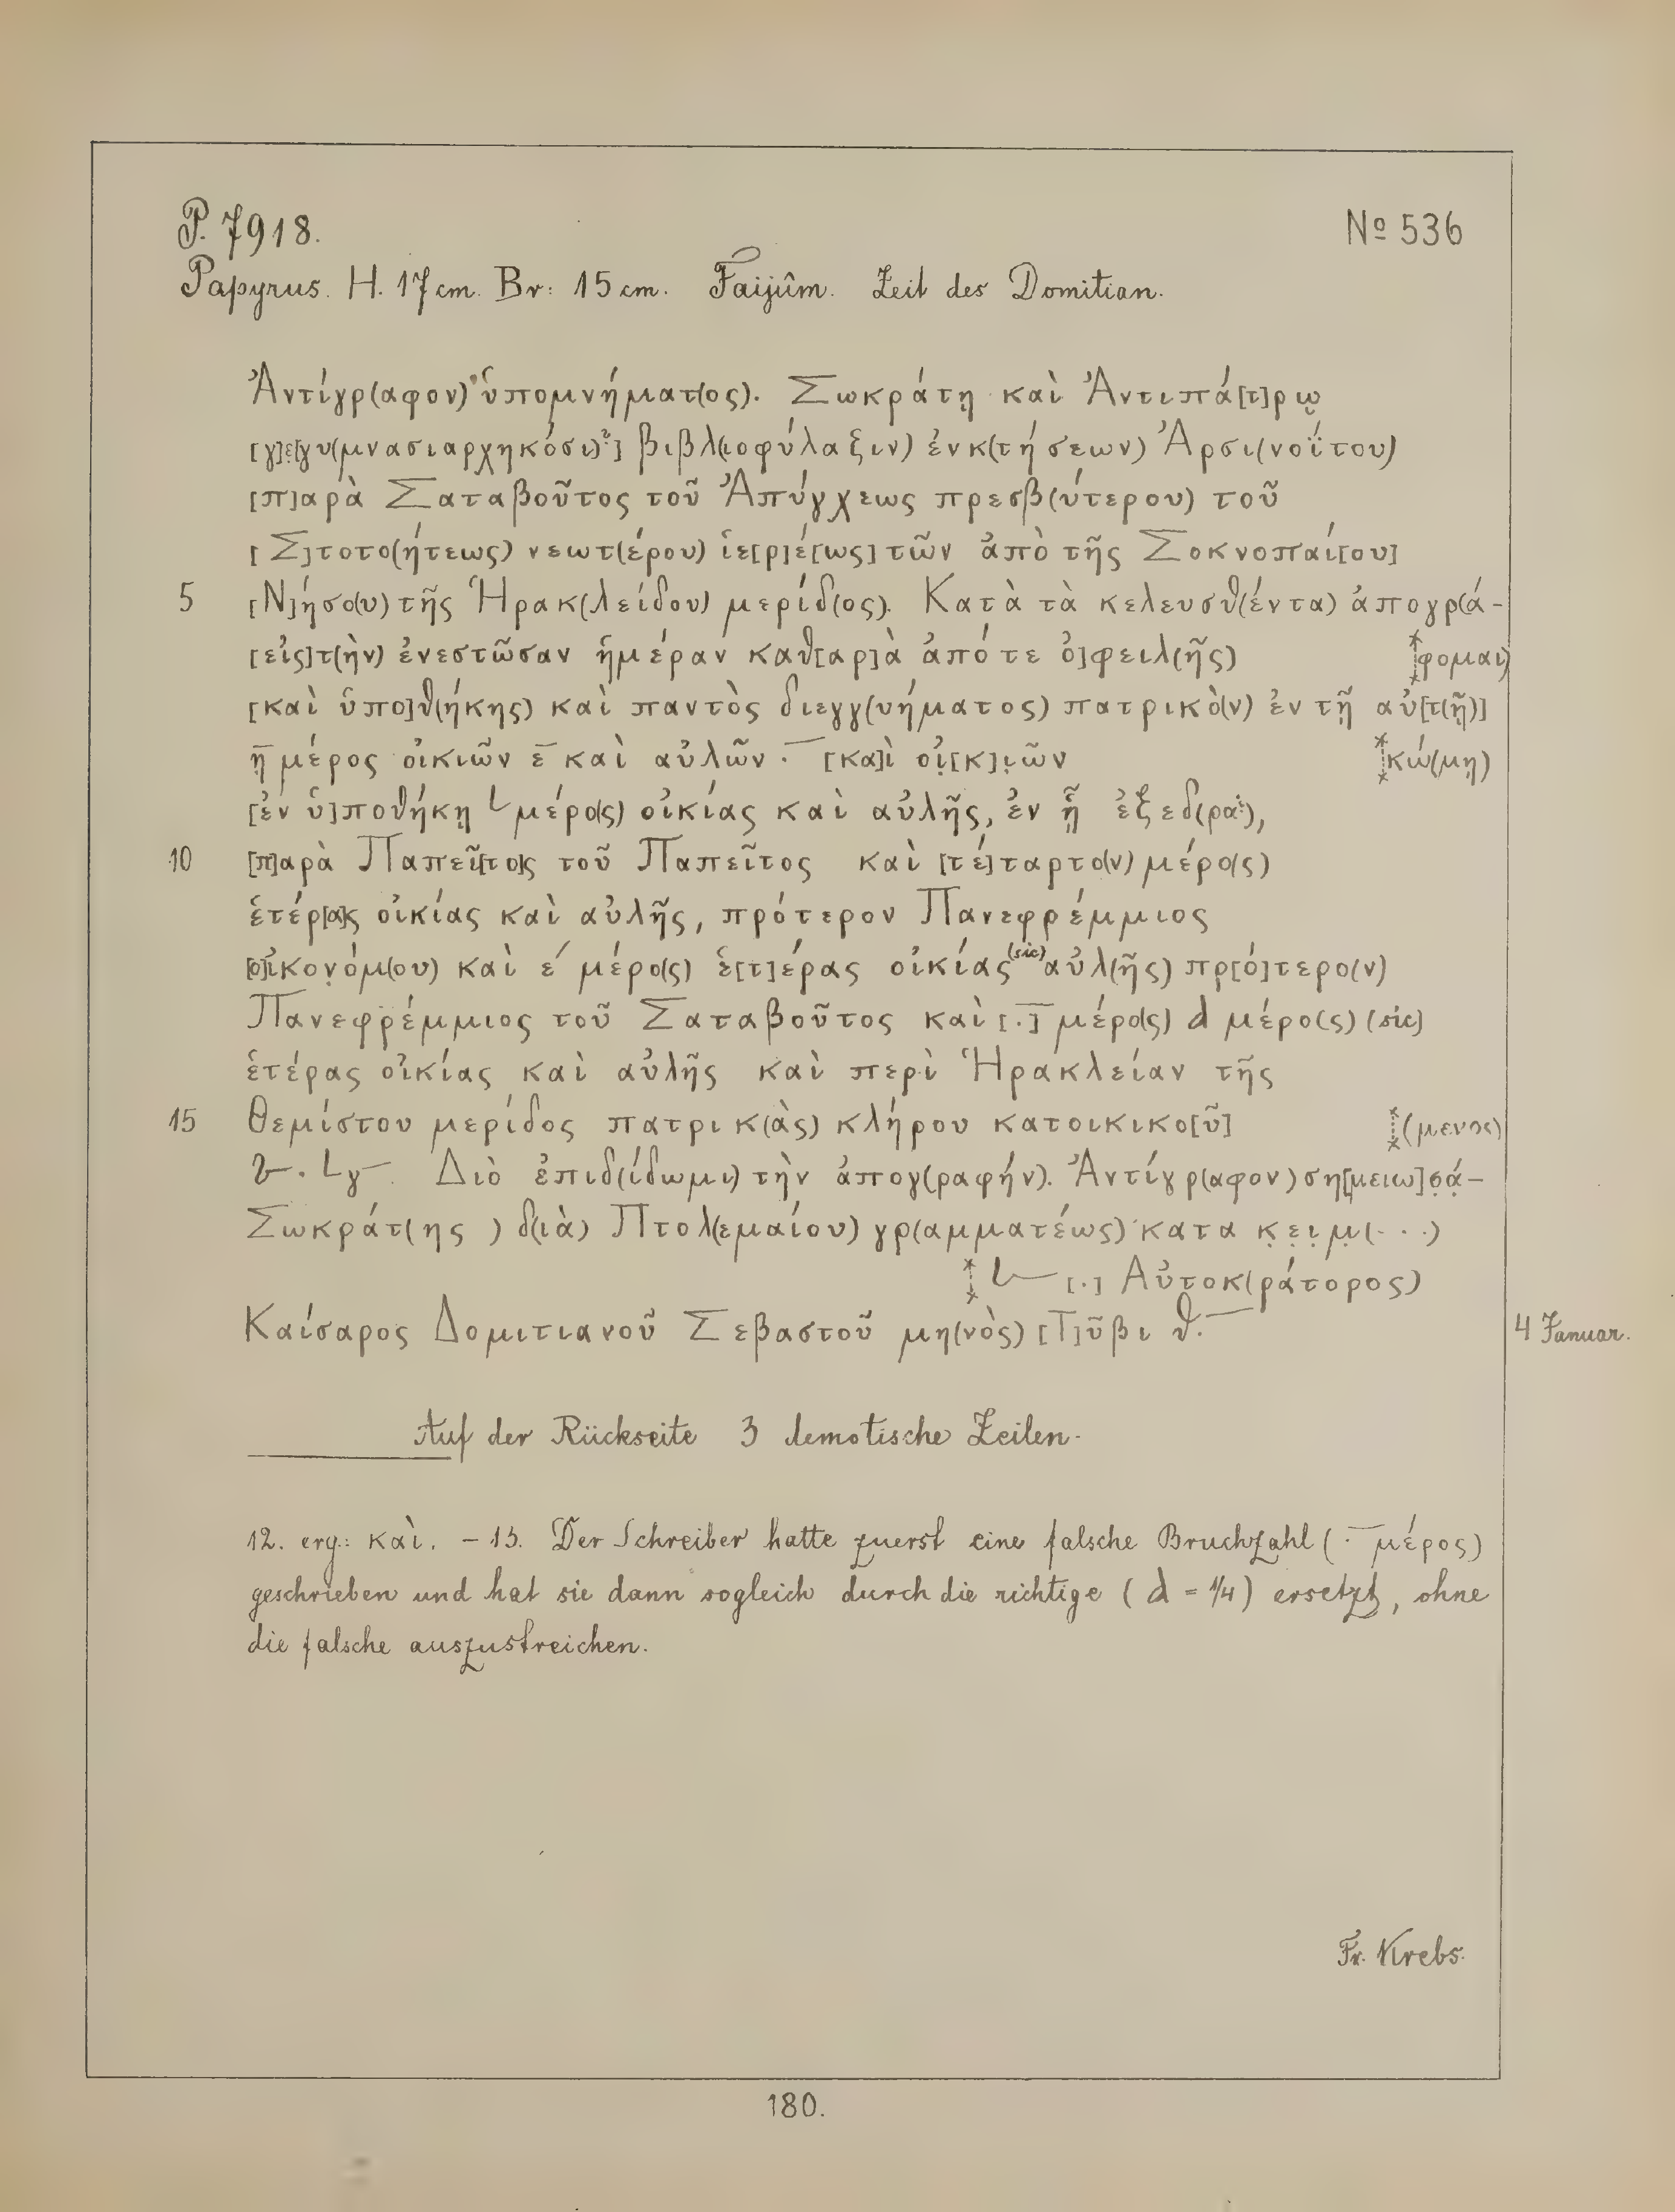 P. 7918.
Nº 536
Papyrus. H. 17 cm. Br: 15 cm. Faijûm. Zeit des Domitian.
Ἀντίγρ(αφον) ὑπομνήματ(ος). Σωκράτῃ καὶ Ἀντιπά[τ]ρῳ
[γ]ε[γυ(μνασιαρχηκόσι)?] βιβλ(ιοφύλαξιν) ἐνκ(τήσεων) Ἀρσι(νοΐτου)
[π]αρὰ Σαταβοῦτος τοῦ Ἀπύγχεως πρεσβ(ύτερου) τοῦ
[Σ]τοτο(ήτεως) νεωτ(έρου) ἱε[ρ]έ[ως] τῶν ἀπὸ τῆς Σοκνοπαί[ου]
5 [Ν]ήσο(υ) τῆς Ἡρακ(λείδου) μερίδ(ος). Κατὰ τὰ κελευσθ(έντα) ἀπογρ(ά-
[εἰς] τ(ὴν) ἐνεστῶσαν ἡμέραν καθ[αρ]ὰ ἀπό τε ὀ]φειλ(ῆς) φομαι)
[καὶ ὑπο]θ(ήκης) καὶ παντὸς διεγγ(υήματος) πατρικὸ(ν) ἐν τῇ αὐ[τ(ῇ)]
η̅ μέρος οἰκιῶν ε̅ καὶ αὐλῶν · ̅ [κα]ὶ οἰ̣[κ]ι̣ῶν κώ(μῃ)
[ἐν ὑ]ποθήκῃ 𐅵 μέρο(ς) οἰκίας καὶ αὐλῆς, ἐν ᾗ ἐξεδ(ρα?),
10 [π]αρὰ Παπεῖ[το]ς τοῦ Παπεῖτος καὶ [τέ]ταρτο(ν) μέρο(ς)
ἑτέρ[α]ς οἰκίας καὶ αὐλῆς, πρότερον Πανεφρέμμιος
[ο]ἰκον̣όμ(ου) καὶ ε´ μέρο(ς) ἑ[τ]έρας οἰκίας (sic) αὐλ(ῆς) πρ[ό]τερο(ν)
Πανεφρέμμιος τοῦ Σαταβοῦτος καὶ [.]̅ μέρο(ς) d μέρο(ς) (sic)
ἑτέρας οἰκίας καὶ αὐλῆς καὶ περὶ Ἡρακλείαν τῆς
15 Θεμίστου μερίδος πατρικ(ὰς) κλήρου κατοικικο[ῦ] (μενος)
Διὸ ἐπιδ(ίδωμι) τὴν ἀπογ(ραφήν). Ἀντίγρ(αφον) ση[μειω]σ̣ά̣-
Σωκράτ(ης) δ(ιὰ) Πτολ(εμαίου) γρ(αμματέως) κατα κ̣ε̣ι̣μ̣(· · ·)
L [.] Αὐτοκ(ράτορος)
Καίσαρος Δομιτιανοῦ Σεβαστοῦ μη(νὸς) [Τ]ῦβι θ̅. 4 Januar.
Auf der Rückseite 3 demotische Zeilen.
12. erg.: καὶ. – 13. Der Schreiber hatte zuerst eine falsche Bruchzahl (· ̅ μέρος)
geschrieben und hat sie dann sogleich durch die richtige (d = 1/4) ersetzt, ohne
die falsche auszustreichen.
Fr. Krebs.
180.